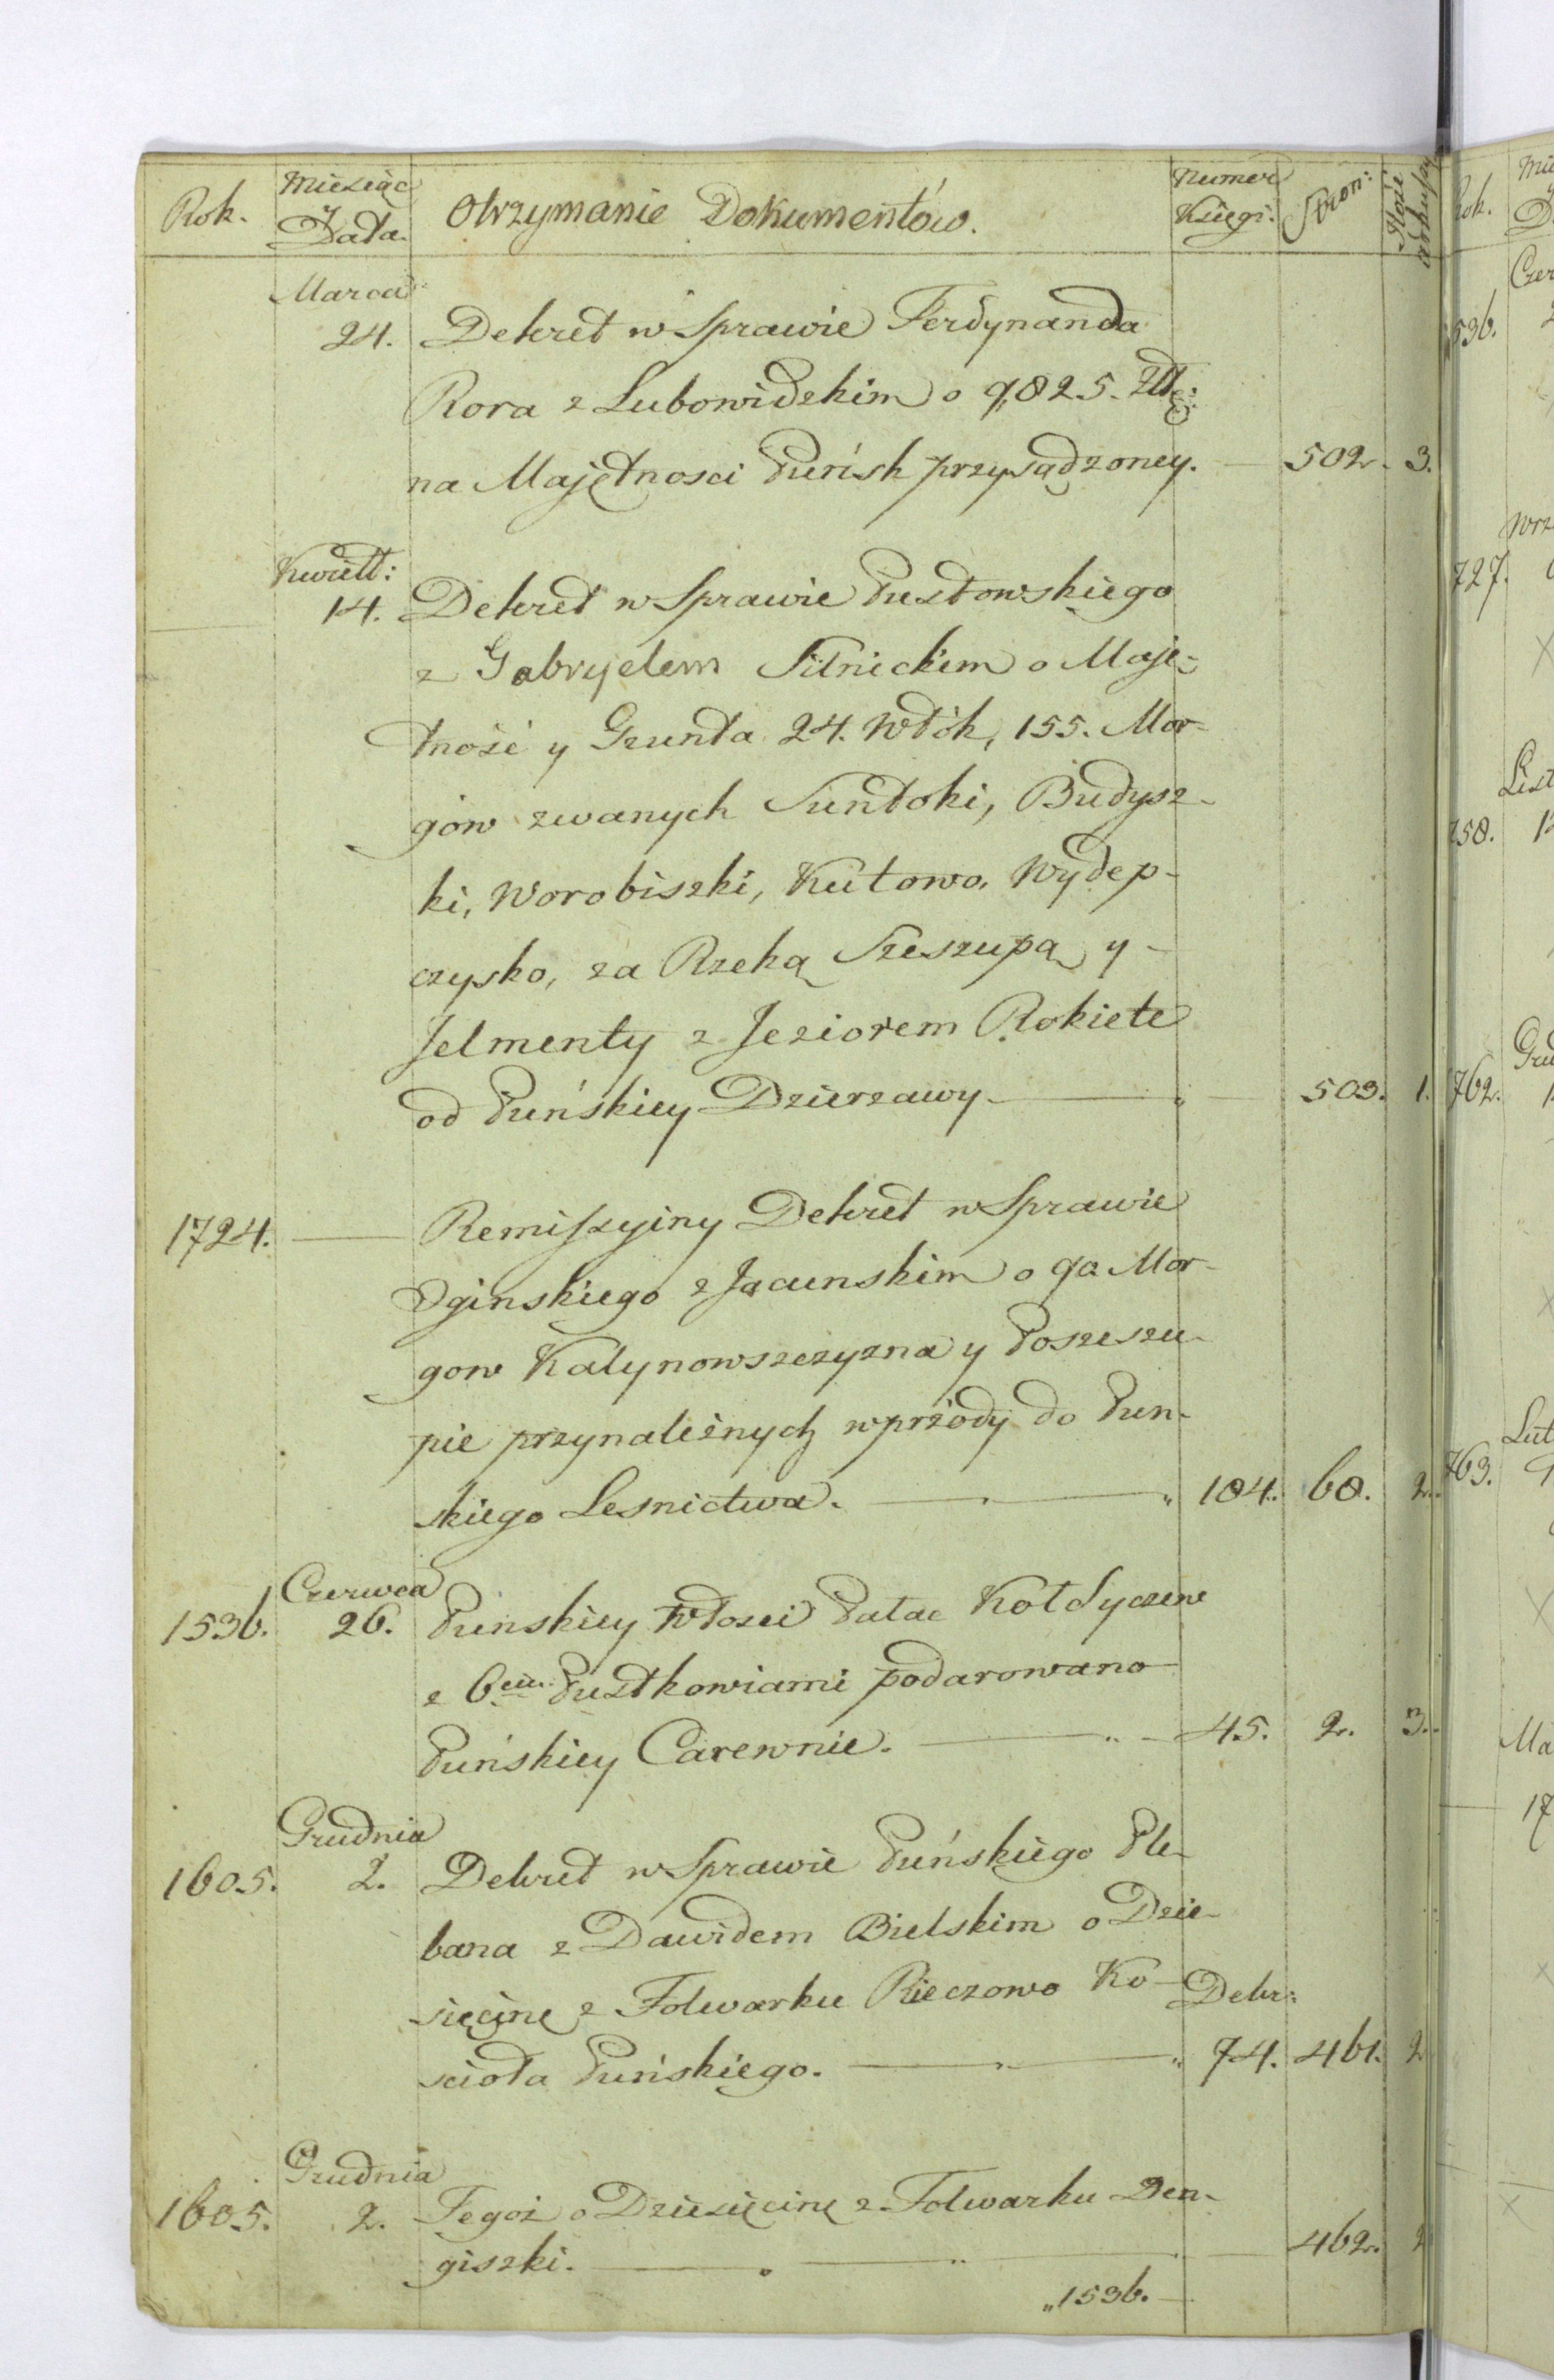 Rok. Miesiąc y Data. Otrzymanie Dokumentów. Numer Księgi. Stron: Ilość arkuszy
Marca
24. Dekret w Sprawie Ferdynanda
Rora z Lubowidzkim o 9,825. Złt:
na Majętnosci Puńsk przysądzoney. — 502. 3.
Kwiett:
14. Dekret w Sprawie Pustowskiego
z Gabryelem Silnickim o Maję-
tność y Grunta 24. Włók, 155. Mor-
gów zwanych Suntoki, Budysz-
ki, Worobiszki, Kutowo, Wydep-
czysko, za Rzeką Szeszupą y
Jelmenty z Jeziorem Rokiete
od Puńskiey Dzierzawy — 503. 1.
1724. — Remiszyiny Dekret w Sprawie
Oginskiego z Jacunskim o 92 Mor-
gow Kalynowszczyzna y Poszeszu-
pie przynależnych wprzody do Pun-
skiego Lesnictwa. — 184. 68. 2.
Czerwca
1536. 26. Punskiey Włosci Pałac Kołdyczew
z 6ciu Pustkowiami podarowano
Puńskiey Carewnie. — 45. 2. 3.
Grudnia
1605. 2. Dekret w Sprawie Puńskiego Ple-
bana z Dawidem Bielskim o Dzie-
sięcinę z Folwarku Rieczowo Ko- Dekr:
scioła Puńskiego. — 74. 461. 2
Grudnia
1605. 2. Tegoż o Dziesięcinę z Folwarku Den-
giszki. — 462. 2
„1536.